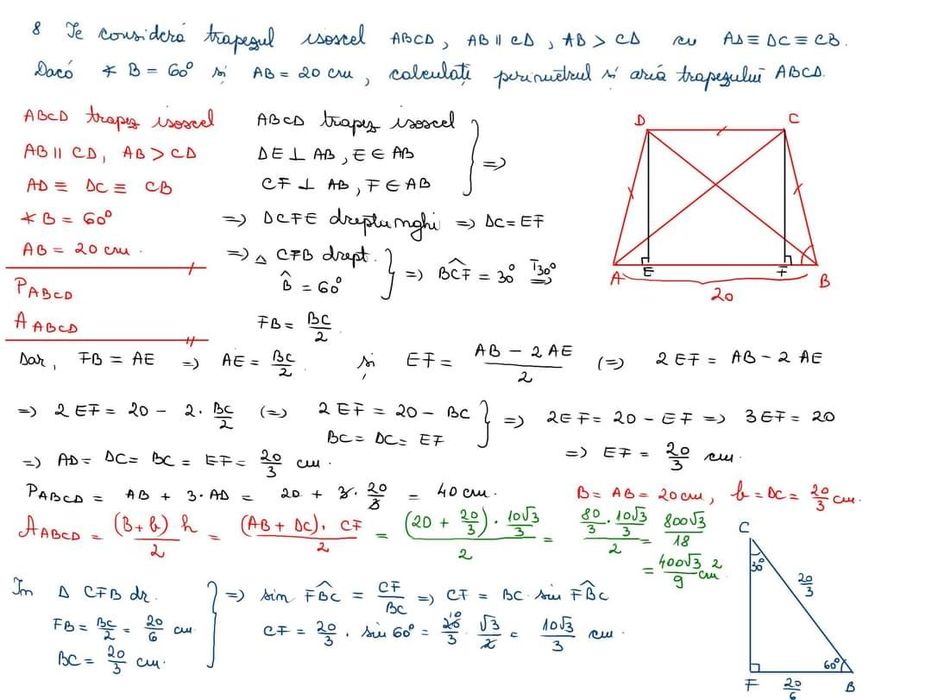 8 Se consideră trapezul isoscel ABCD, AB ∥ CD, AB > CD cu AD ≡ DC ≡ CB.
Dacă ∢ B = 60° și AB = 20 cm, calculați perimetrul și aria trapezului ABCD.
ABCD trapez isoscel
AB ∥ CD, AB > CD
AD ≡ DC ≡ CB
∢ B = 60°
AB = 20 cm.
P ABCD
A ABCD
ABCD trapez isoscel
DE ⊥ AB, E ∈ AB
CF ⊥ AB, F ∈ AB } =>
=> DCFE dreptunghi => DC = EF
=> △ CFB drept.
B̂ = 60° } => BĈF = 30° T30° =>
FB = BC/2.
D
C
A
E
F
B
20
Dar, FB = AE => AE = BC/2. și EF = (AB - 2AE)/2 (=> 2EF = AB - 2AE
=> 2EF = 20 - 2 · BC/2 (=> 2EF = 20 - BC
BC = DC = EF } => 2EF = 20 - EF => 3EF = 20
=> EF = 20/3 cm.
=> AD = DC = BC = EF = 20/3 cm.
P ABCD = AB + 3·AD = 20 + 3·20/3 = 40 cm.
B = AB = 20 cm, b = DC = 20/3 cm.
A ABCD = (B+b)·h/2 = (AB + DC)·CF/2 = (20 + 20/3)·10√3/3 /2 = 80/3 · 10√3/3 /2 = 800√3/18
= 400√3/9 cm²
In △ CFB dr.
FB = BC/2 = 20/6 cm
BC = 20/3 cm. } => sin FB̂C = CF/BC => CF = BC · sin FB̂C
CF = 20/3 · sin 60° = 20/3 · √3/2 = 10√3/3 cm.
10
C
30°
20/3
60°
F
20/6
B